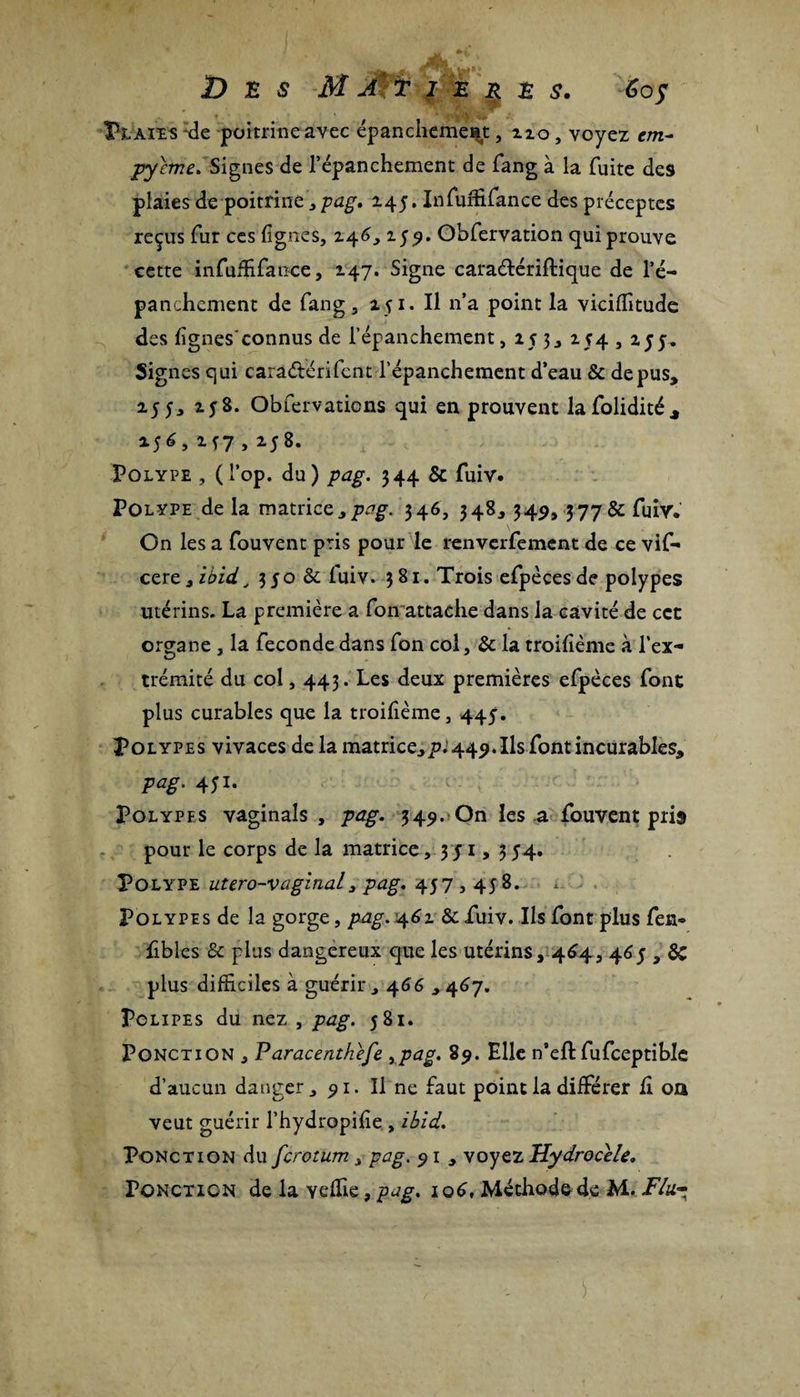 DES MATIERES. 605
PLAIES de poitrine avec épanchement, 220, voyez em-
pyème. Signes de l'épanchement de ſang à la ſuite des
plaies de poitrine, pag. 245. Inſuffiſance des préceptes
reçus ſur ces ſignes, 246, 259. Obſervation qui prouve
cette inſuffiſance, 247. Signe caractériſtique de l'é-
panchement de ſang, 251. Il n'a point la viciſſitude
des ſignes connus de l'épanchement, 253, 254, 255.
Signes qui caractériſent l'épanchement d'eau & de pus,
255, 258. Obſervations qui en prouvent la ſolidité,
256, 257, 258.
POLYPE, (l'op. du) pag. 344 & ſuiv.
POLYPE de la matrice, pag. 346, 348, 349, 377 & ſuiv.
On les a ſouvent pris pour le renverſement de ce viſ-
cere, ibid, 350 & ſuiv. 381. Trois eſpèces de polypes
utérins. La première a ſon attache dans la cavité de cet
organe, la ſeconde dans ſon col, & la troiſième à l'ex-
trémité du col, 443. Les deux premières eſpèces ſont
plus curables que la troiſième, 445.
POLYPES vivaces de la matrice, p. 449. Ils ſont incurables,
pag. 451.
POLYPES vaginals, pag. 349. On les a ſouvent pris
pour le corps de la matrice, 351, 354.
POLYPE utero-vaginal, pag. 457, 458.
POLYPES de la gorge, pag. 462 & ſuiv. Ils ſont plus ſen-
ſibles & plus dangereux que les utérins, 464, 465, &
plus difficiles à guérir, 466, 467.
POLIPES du nez, pag. 581.
PONCTION, Paracenthèſe, pag. 89. Elle n'eſt ſuſceptible
d'aucun danger, 91. Il ne faut point la différer ſi on
veut guérir l'hydropiſie, ibid.
PONCTION du ſcrotum, pag. 91, voyez Hydrocèle.
PONCTION de la veſſie, pag. 106, Méthode de M. Flu-